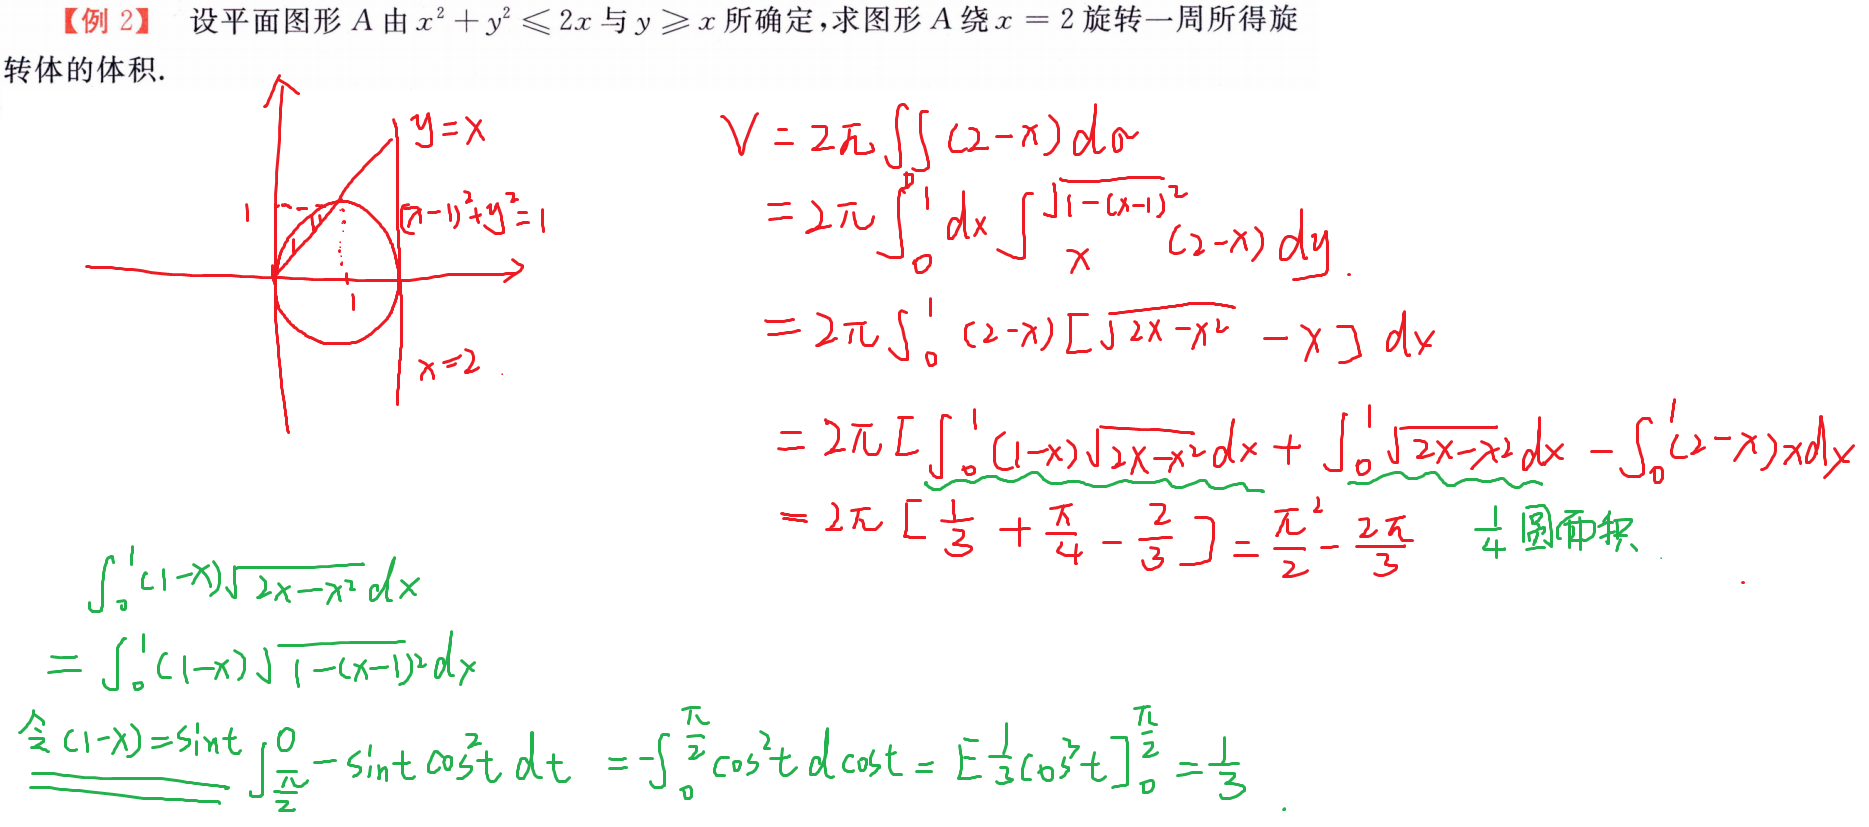 【例 2】 设平面图形 A 由 x² + y² ⩽ 2x 与 y ⩾ x 所确定,求图形 A 绕 x = 2 旋转一周所得旋
转体的体积.
y=x
1
(x-1)²+y²=1
1
x=2
V = 2π∬_D (2-x) dσ
= 2π∫₀¹ dx ∫_x^{√(1-(x-1)²)} (2-x) dy.
= 2π∫₀¹ (2-x)[√(2x-x²) - x] dx
= 2π[∫₀¹ (1-x)√(2x-x²) dx + ∫₀¹ √(2x-x²) dx - ∫₀¹ (2-x)x dx
= 2π[1/3 + π/4 - 2/3] = π²/2 - 2π/3
1/4 圆面积
∫₀¹ (1-x)√(2x-x²) dx
= ∫₀¹ (1-x)√(1-(x-1)²) dx
令(1-x)=sint ∫_{π/2}^0 -sint cos²t dt = -∫₀^{π/2} cos²t dcost = [1/3 cos³t]₀^{π/2} = 1/3